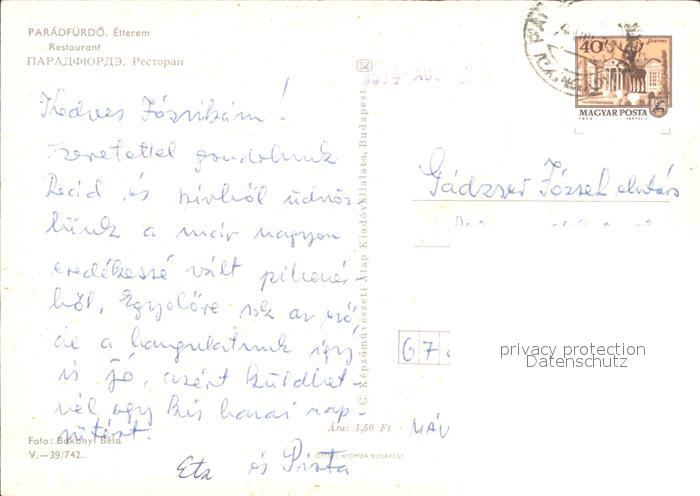 PARÁDFÜRDŐ. Étterem
Restaurant
ПАРАДФЮРДЭ. Ресторан
Kedves Józsikám!
Szeretettel gondolunk
Reád és szívből üdvöz-
lünk a már nagyon
esedékessé vált pihenés-
ből. Egyelőre sok az eső
de a hangulatunk így
is jó, azért küldhet-
nél egy kis hazai nap-
sütést.
Foto: Bakonyi Béla
V.—39/742.
és Pista
© Képzőművészeti Alap Kiadóvállalata, Budapest
Ára: 1,50 Ft
OFFSET-NYOMDA BUDAPEST
1974 AUG
40
MAGYAR POSTA
József elvtárs
67
MÁV
privacy protection
Datenschutz